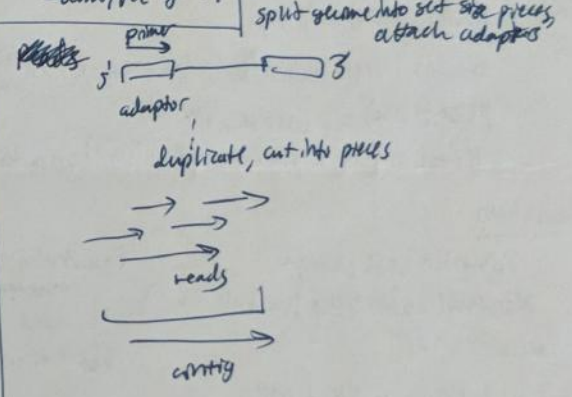 split genome into set size pieces,
attach adaptors
primer
5' 3'
adaptor
duplicate, cut into pieces
reads
contig